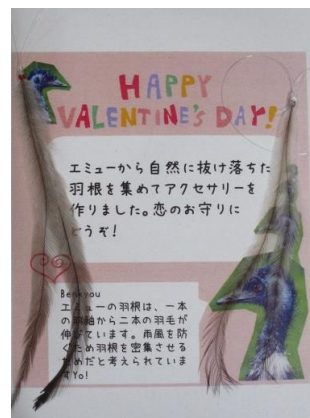 HAPPY
VALENTINE'S DAY!
エミューから自然に抜け落ちた
羽根を集めてアクセサリーを
作りました。恋のお守りに
どうぞ!
Benkyou
エミューの羽根は、一本
の羽軸から二本の羽毛が
伸びています。雨風を防
ぐため羽根を密集させる
ためだと考えられていま
すYo!